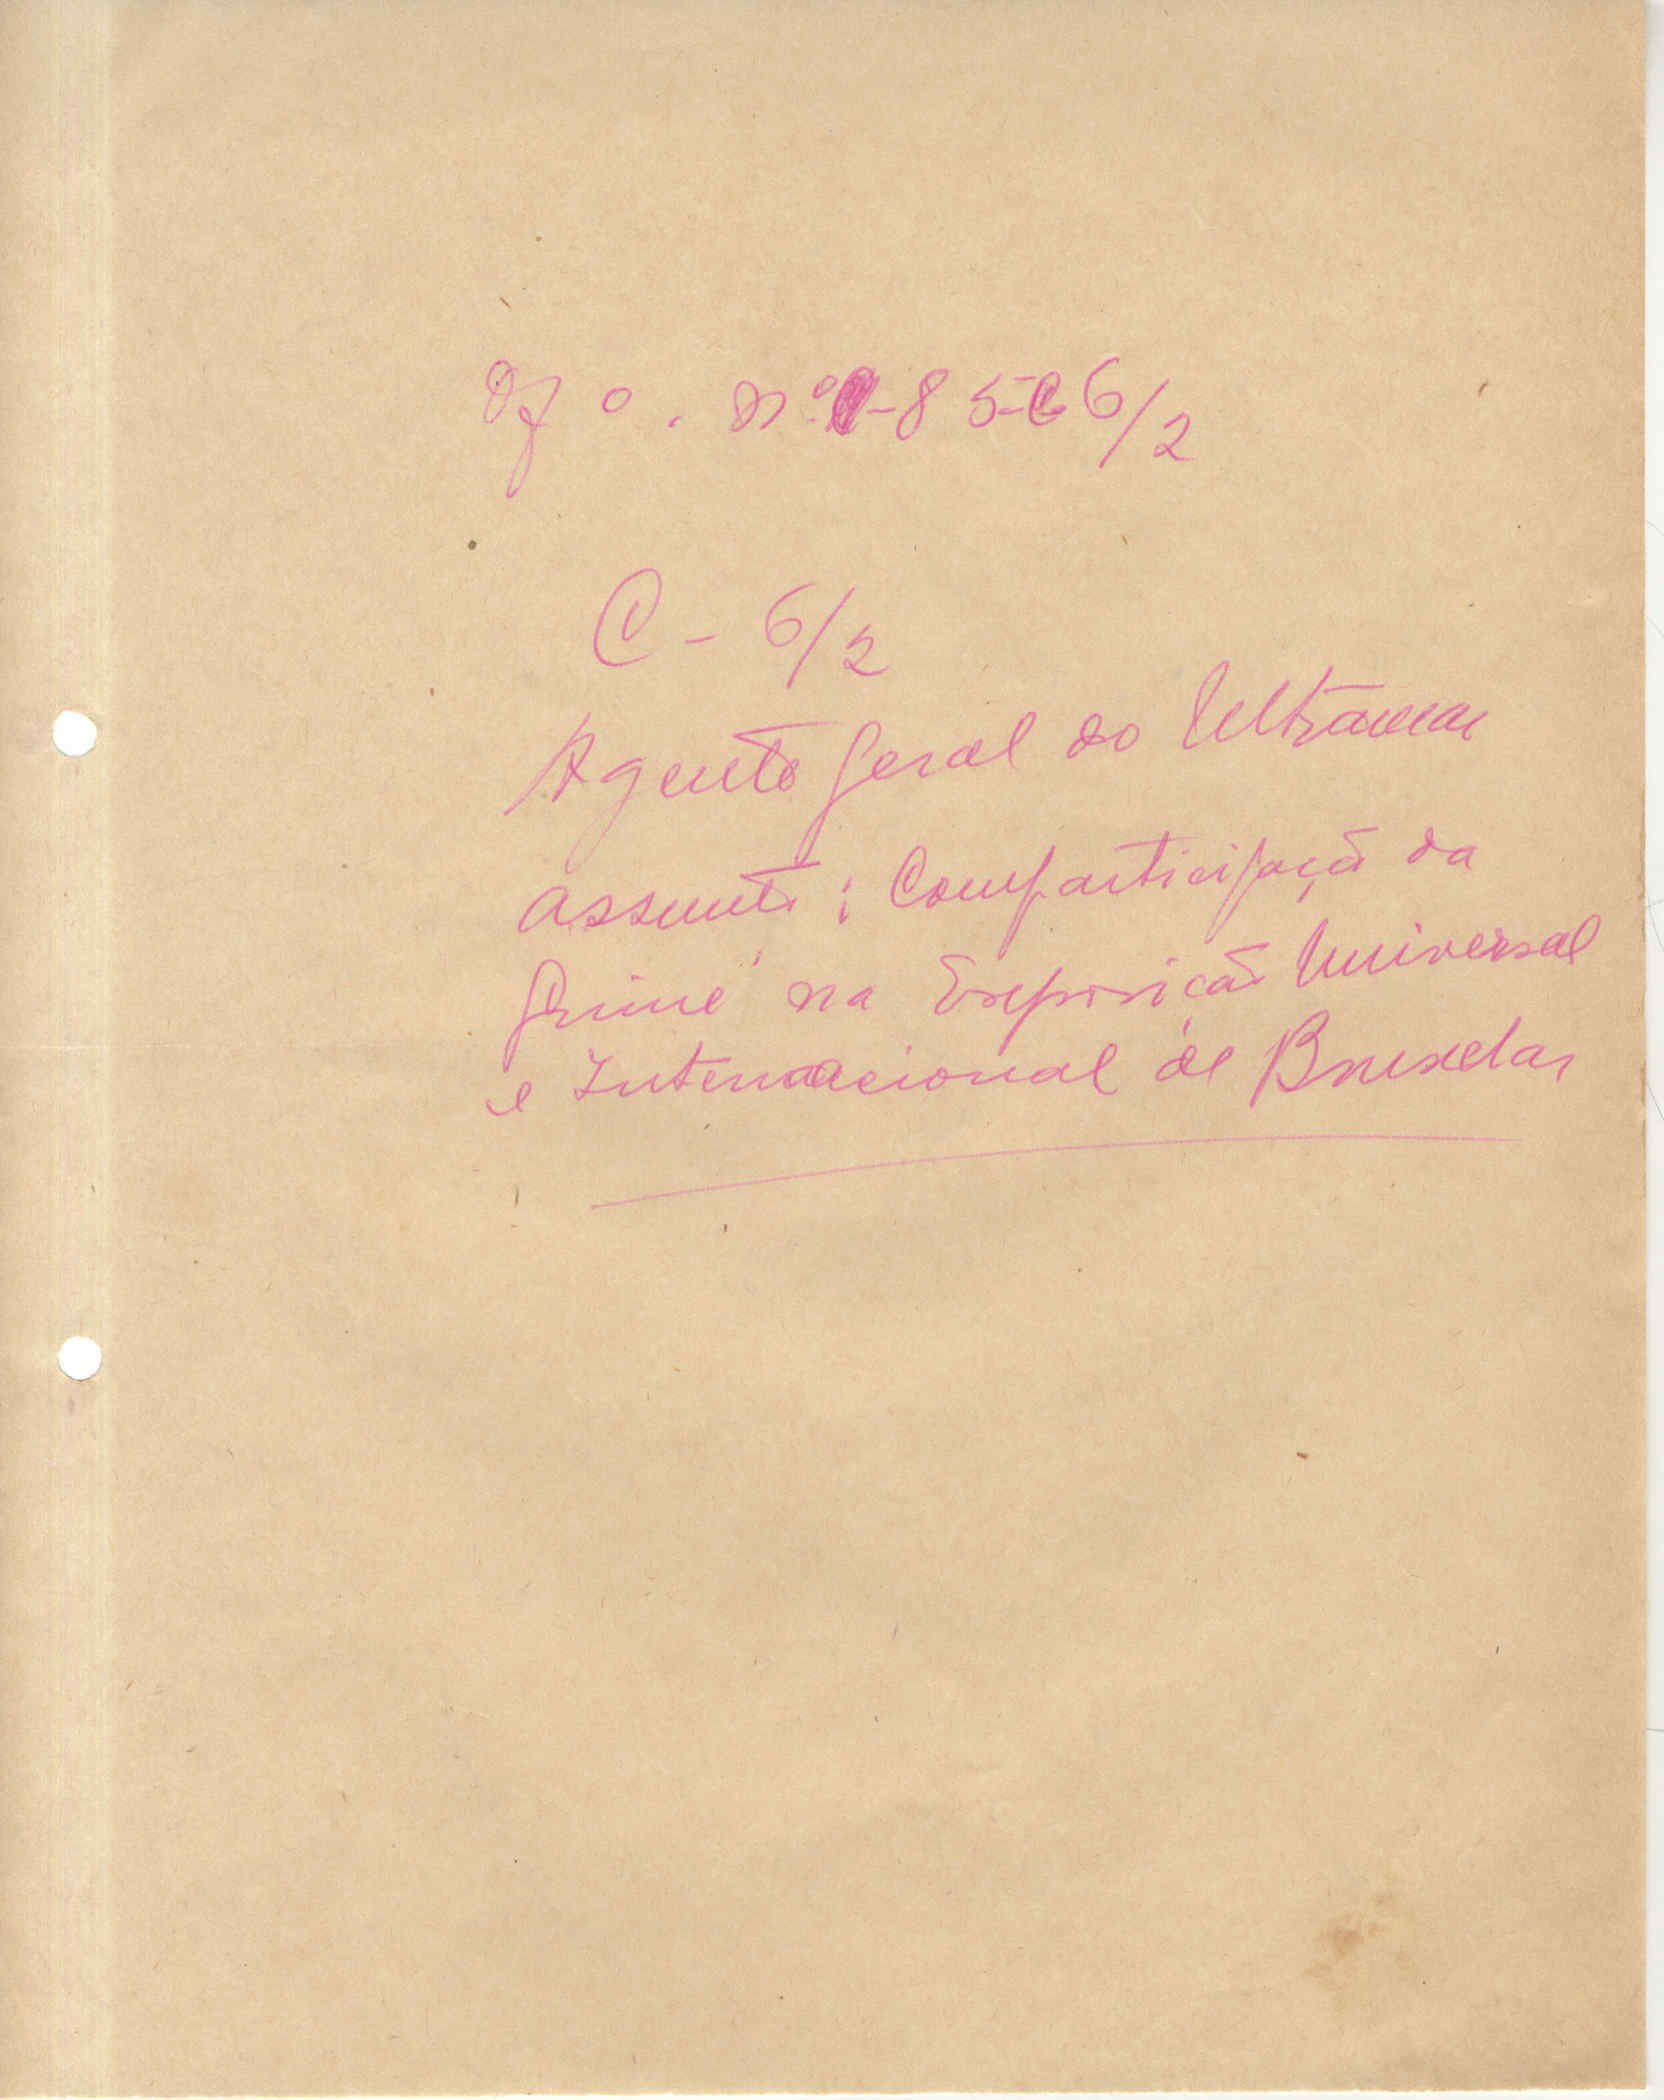 Of o. nº -8 5-C 6/2
C - 6/2
Agente Geral do Ultramar
Assunto: Comparticipação da
Guiné na Exposição Universal
e Internacional de Bruxelas